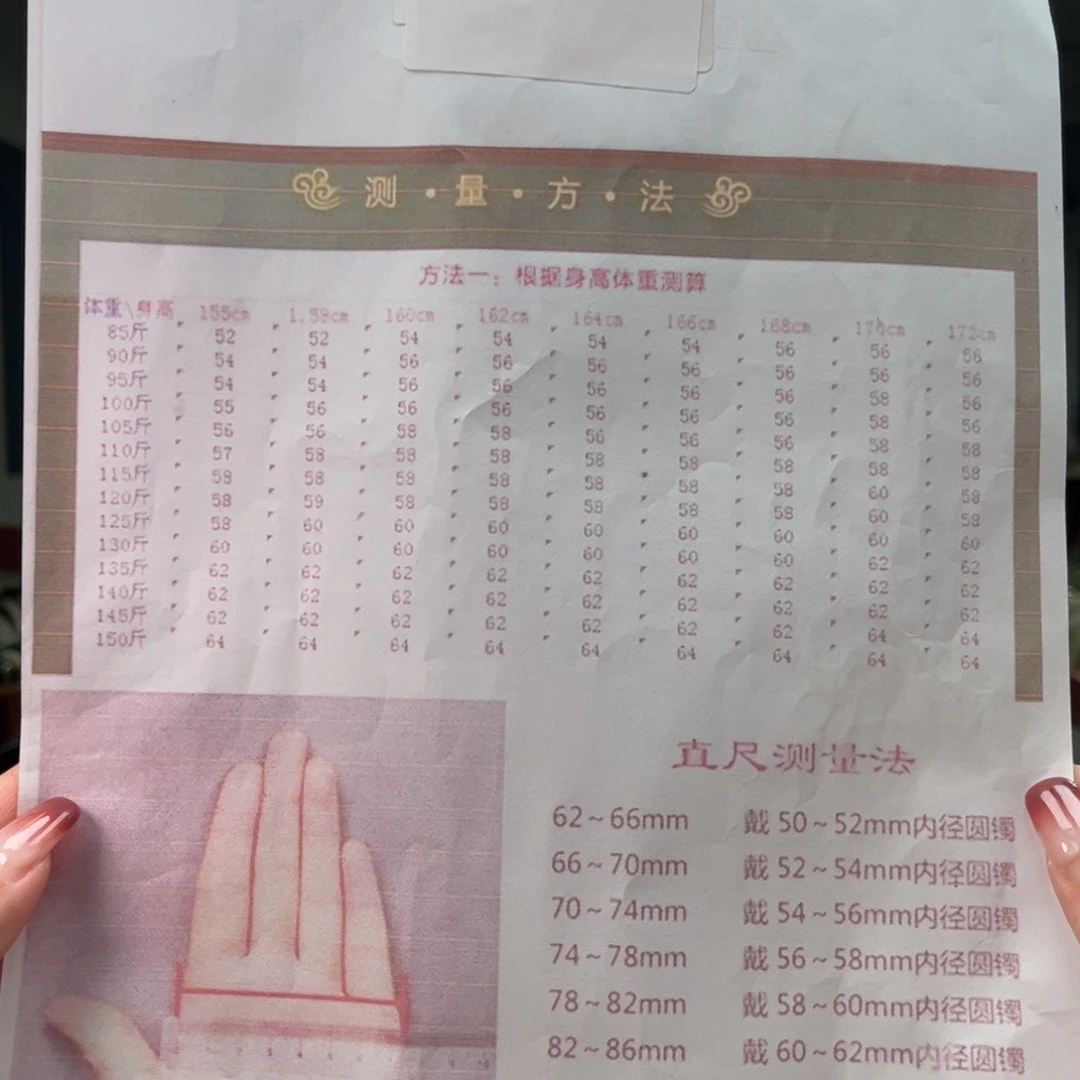 测·量·方·法
方法一：根据身高体重测算
体重\身高 155cm 1.58cm 160cm 162cm 164cm 166cm 168cm 170cm 172cm
85斤 52 52 54 54 54 54 56 56 56
90斤 54 54 56 56 56 56 56 56 56
95斤 54 54 56 56 56 56 56 58 56
100斤 55 56 56 56 56 56 56 58 56
105斤 56 56 58 58 56 56 56 58 58
110斤 57 58 58 58 58 58 58 58 58
115斤 58 58 58 58 58 58 58 60 58
120斤 58 59 58 58 58 58 58 60 58
125斤 58 60 60 60 60 60 60 60 60
130斤 60 60 60 60 60 60 60 62 62
135斤 62 62 62 62 62 62 62 62 62
140斤 62 62 62 62 62 62 62 62 62
145斤 62 62 62 62 62 62 62 64 64
150斤 64 64 64 64 64 64 64 64 64
直尺测量法
62~66mm 戴 50~52mm内径圆镯
66~70mm 戴 52~54mm内径圆镯
70~74mm 戴 54~56mm内径圆镯
74~78mm 戴 56~58mm内径圆镯
78~82mm 戴 58~60mm内径圆镯
82~86mm 戴 60~62mm内径圆镯